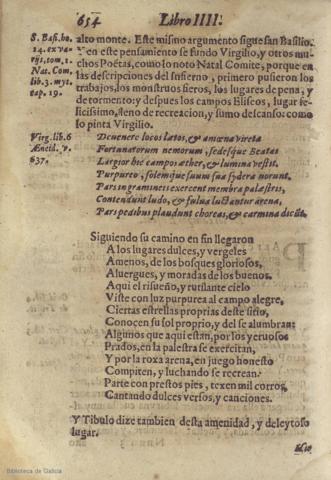 654 Libro IIII.
S. Basi. ho.
14. ex va-
rijs, tom. 1
Nat. Com.
lib. 3. myt.
cap. 19.
alto monte. Este mismo argumento sigue san Basilio.
Y en este pensamiento se fundo Virgilio, y otros mu-
chos Poëtas, como lo noto Natal Comite, porque en
las descripciones del Infierno, primero pusieron los
trabajos, los monstruos fieros, los lugares de pena, y
de tormento: y despues los campos Eliseos, lugar fe-
licissimo, lleno de recreacion, y sumo descanso: como
lo pinta Virgilio.
Virg. lib. 6
Æneid. v.
637.
Deuenere locos latos, & amœna vireta
Fortunatorum nemorum, sedesque Beatas
Largior hic campos æther, & lumina vestit.
Purpureo, solemque suum sua sydera norunt.
Pars in gramineis exercent membra palæstris,
Contendunt ludo, & fulua luctantur arena,
Pars pedibus plaudunt choreas, & carmina dicũt.
Siguiendo su camino en fin llegaron
A los lugares dulces, y vergeles
Amenos, de los bosques gloriosos,
Aluergues, y moradas de los buenos.
Aqui el risueño, y rutilante cielo
Viste con luz purpurea al campo alegre,
Ciertas estrellas proprias deste sitio,
Conocen su sol proprio, y del se alumbran:
Algunos que aqui estan, por los yeruosos
Prados, en la palestra se exercitan,
Y por la roxa arena, en juego honesto
Compiten, y luchando se recrean.
Parte con prestos pies, texen mil corros,
Cantando dulces versos, y canciones.
Y Tibulo dize tambien desta amenidad, y deleytoso
lugar.
Biblioteca de Galicia